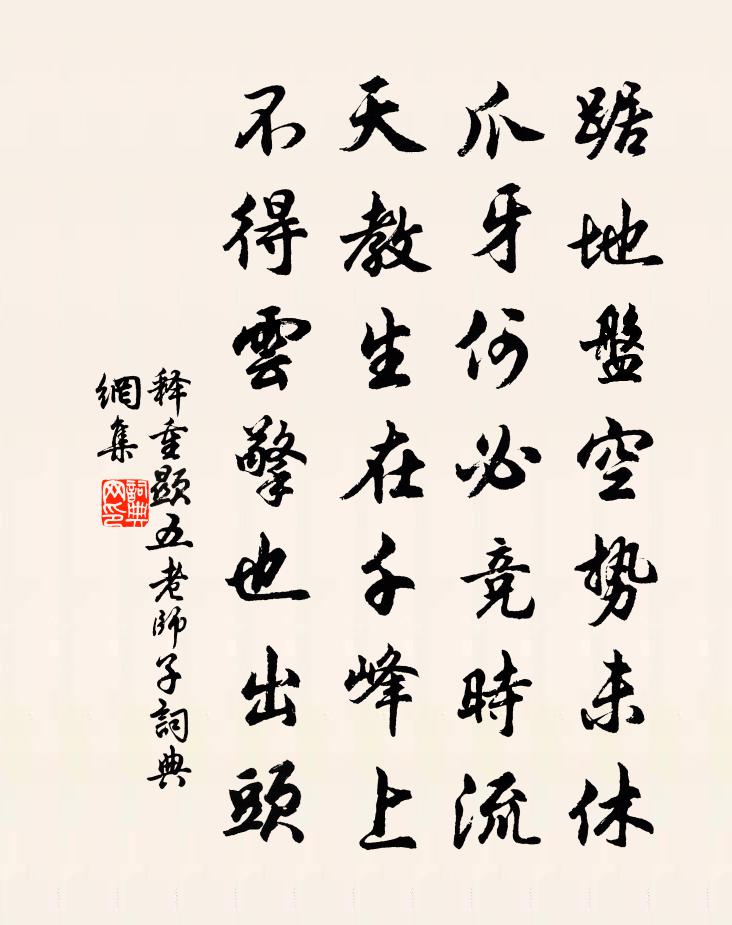 踞地盤空势未休
爪牙何必競時流
天教生在千峰上
不得雲擎也出頭
释重顯五老師子詞典
網集
詞典網印